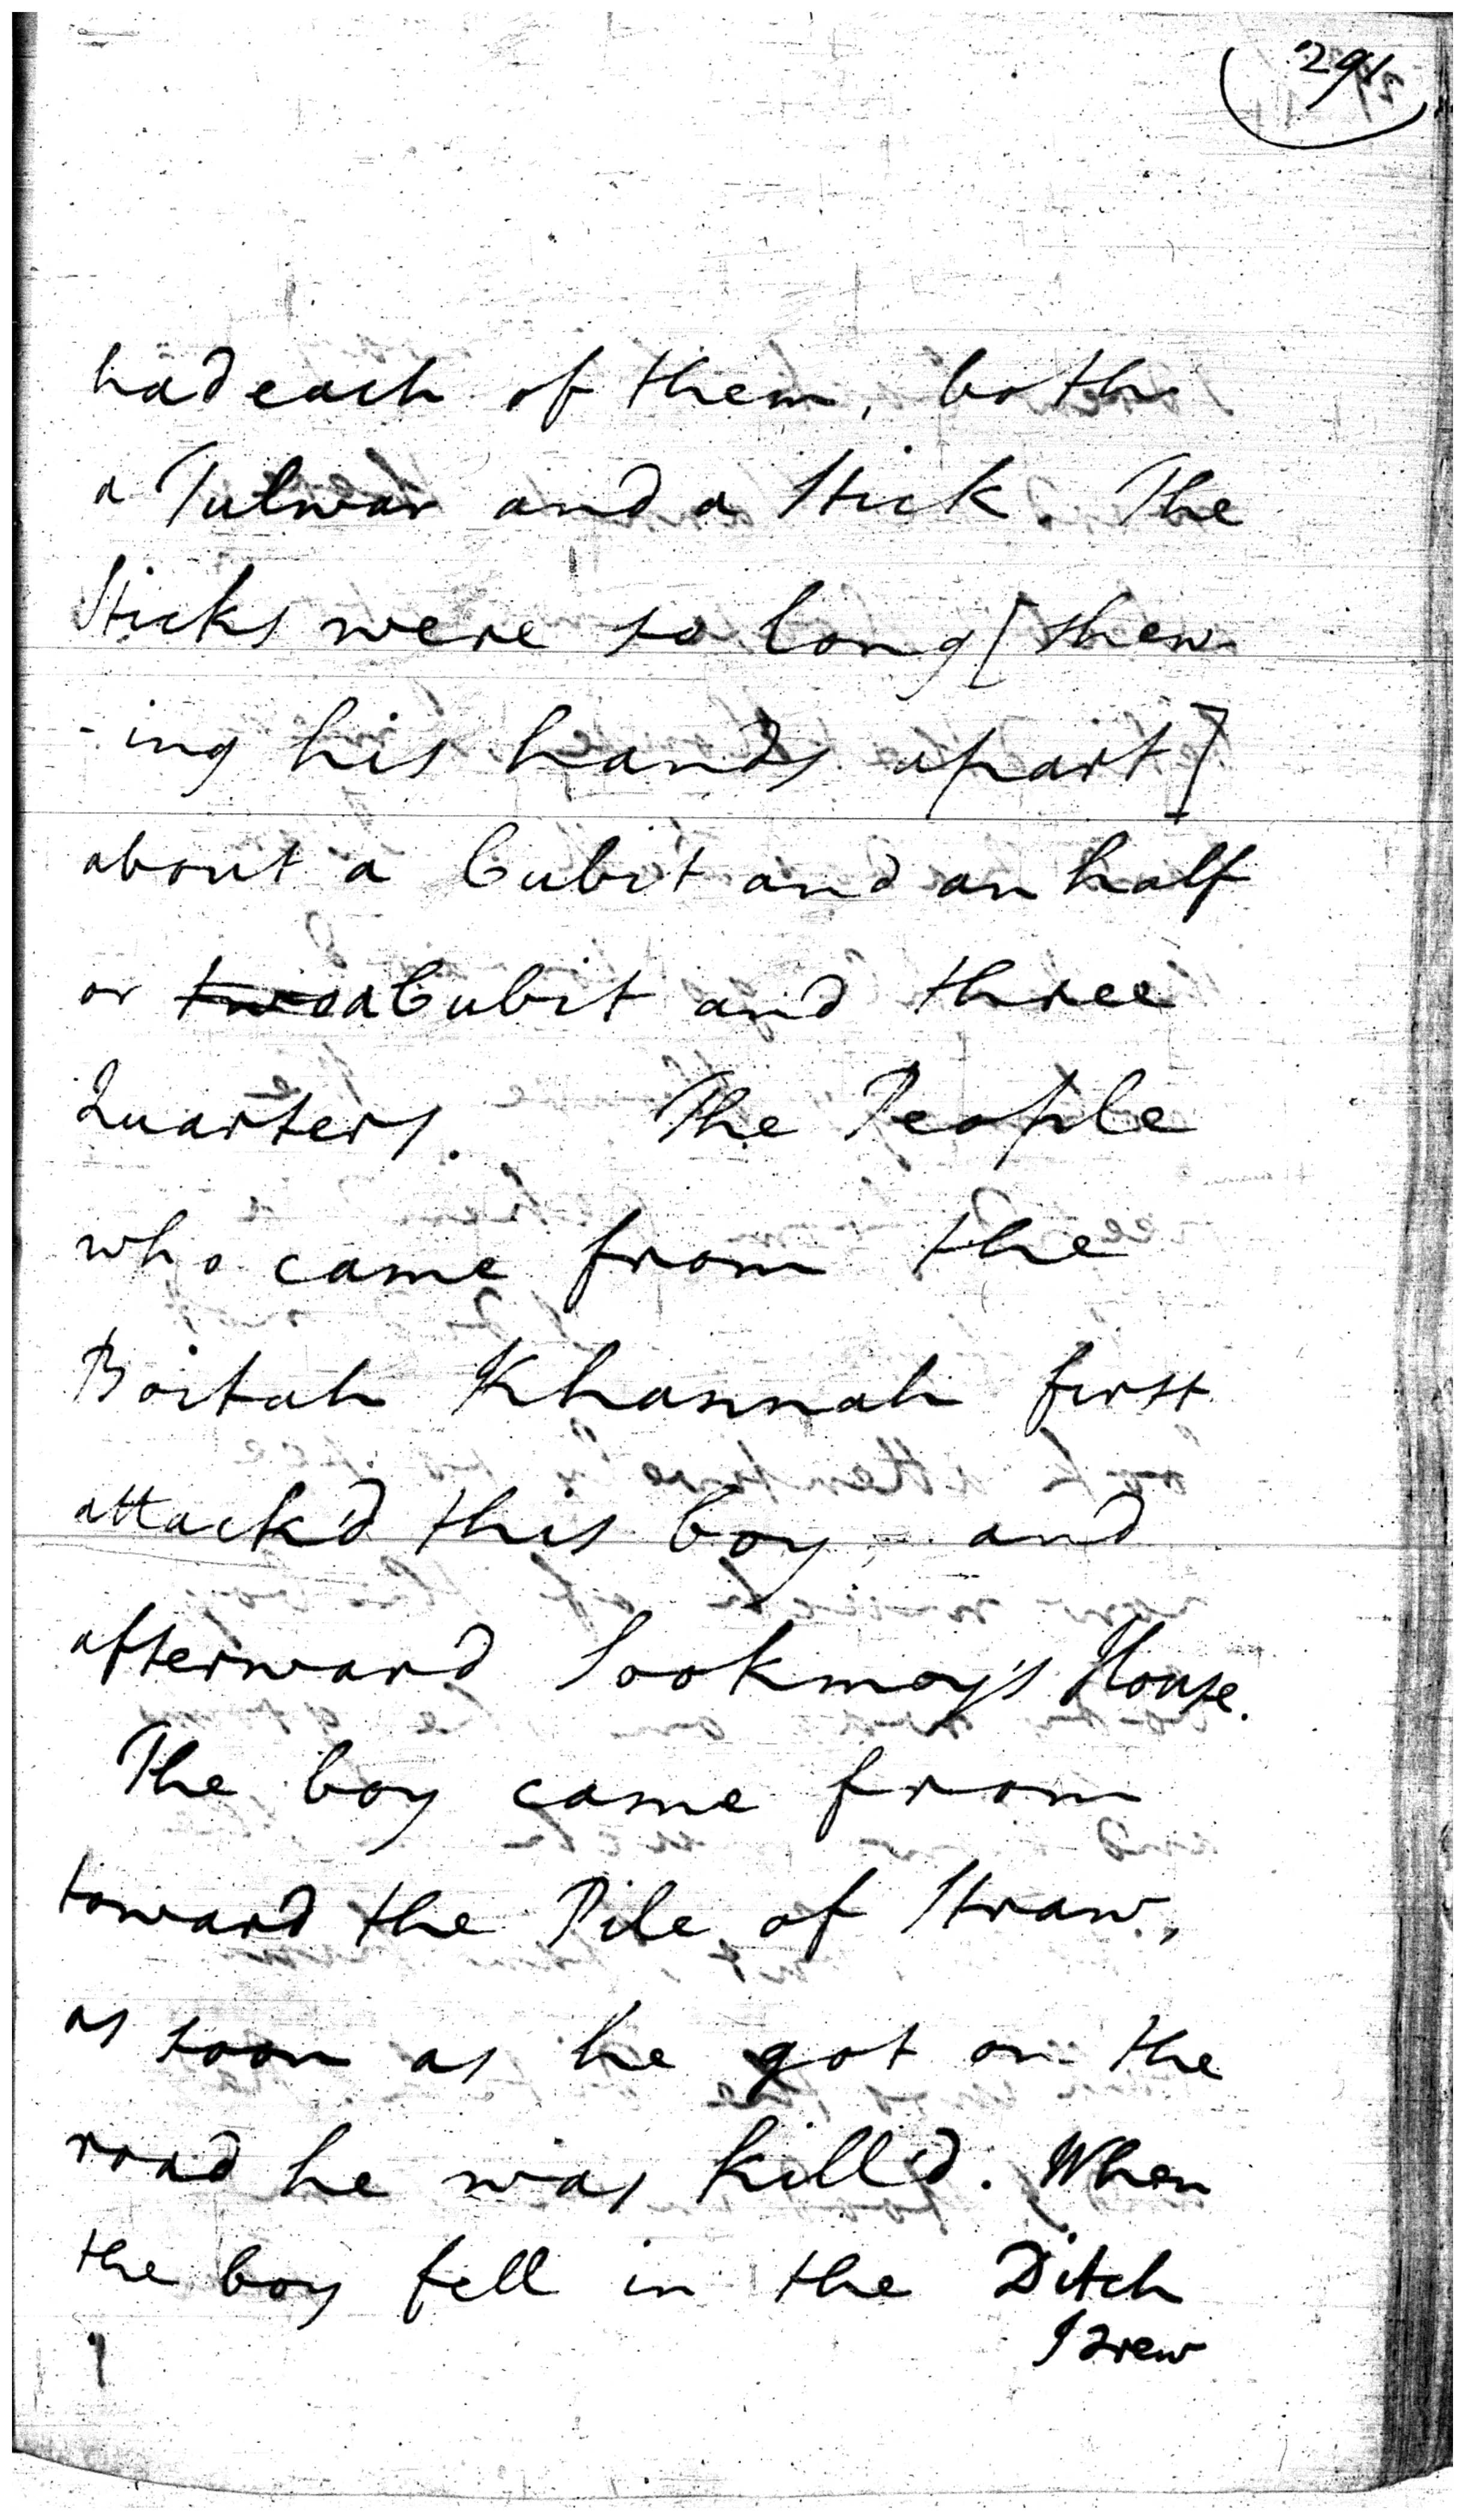 had each of them, both
a Tulwar and a Stick. The
Sticks were so long [shew
-ing his hands apart]
about a Cubit and an half
or a Cubit and three
Quarters. The People
who came from the
Boitah Khannah first
attack'd this boy, and
afterward Sookmoy's House.
The boy came from
toward the Pile of Straw,
as soon as he got on the
road he was kill'd. When
the boy fell in the Ditch
I drew